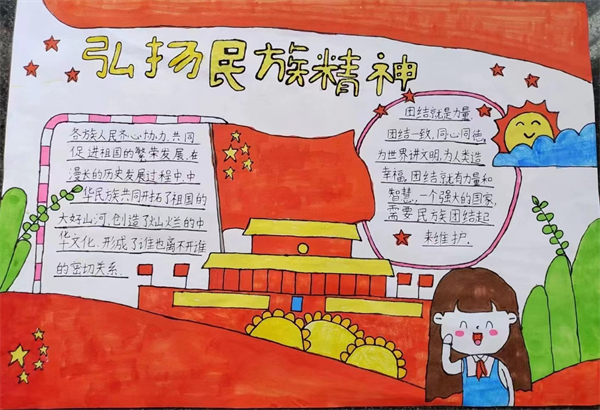 弘扬民族精神
各族人民齐心协力,共同
促进祖国的繁荣发展,在
漫长的历史发展过程中,中
华民族共同开拓了祖国的
大好山河,创造了灿烂的中
华文化、形成了谁也离不开谁
的密切关系.
团结就是力量,
团结一致,同心同德,
为世界讲文明,为人类造
幸福,团结就有力量和
智慧,一个强大的国家,
需要民族团结起
来维护.